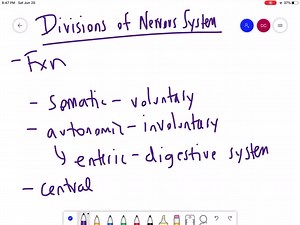 8:47 PM Sat Jun 20
37%
Divisions of Nervous System
- Fxn
- Somatic - voluntary
- autonomic - involuntary
↳ enteric - digestive system
- central